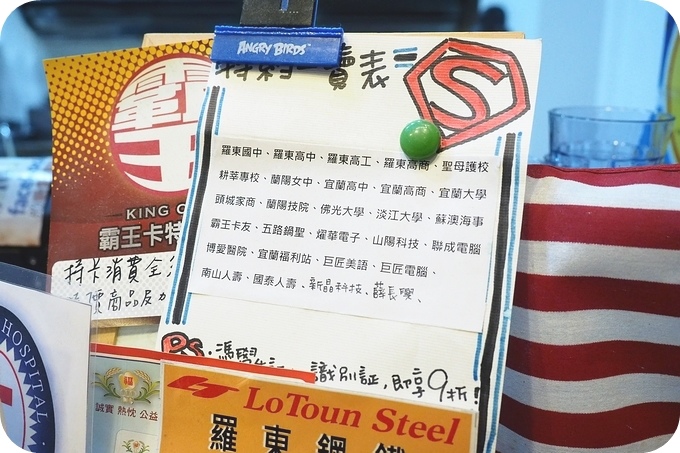 ANGRY BIRDS
賣表
S
霸王
KING
霸王卡特
持卡消費全
價商品及
羅東國中、羅東高中、羅東高工、羅東高商、聖母護校
耕莘專校、蘭陽女中、宜蘭高中、宜蘭高商、宜蘭大學
頭城家商、蘭陽技院、佛光大學、淡江大學、蘇澳海事
霸王卡友、五路鍋聖、燿華電子、山陽科技、聯成電腦
博愛醫院、宜蘭福利站、巨匠美語、巨匠電腦、
南山人壽、國泰人壽、新晶科技、薛長興、
PS.憑學生証 識別証,即享9折!
HOSPITAL
誠實 熱忱 公益
LT LoToun Steel
羅東鋼鐵